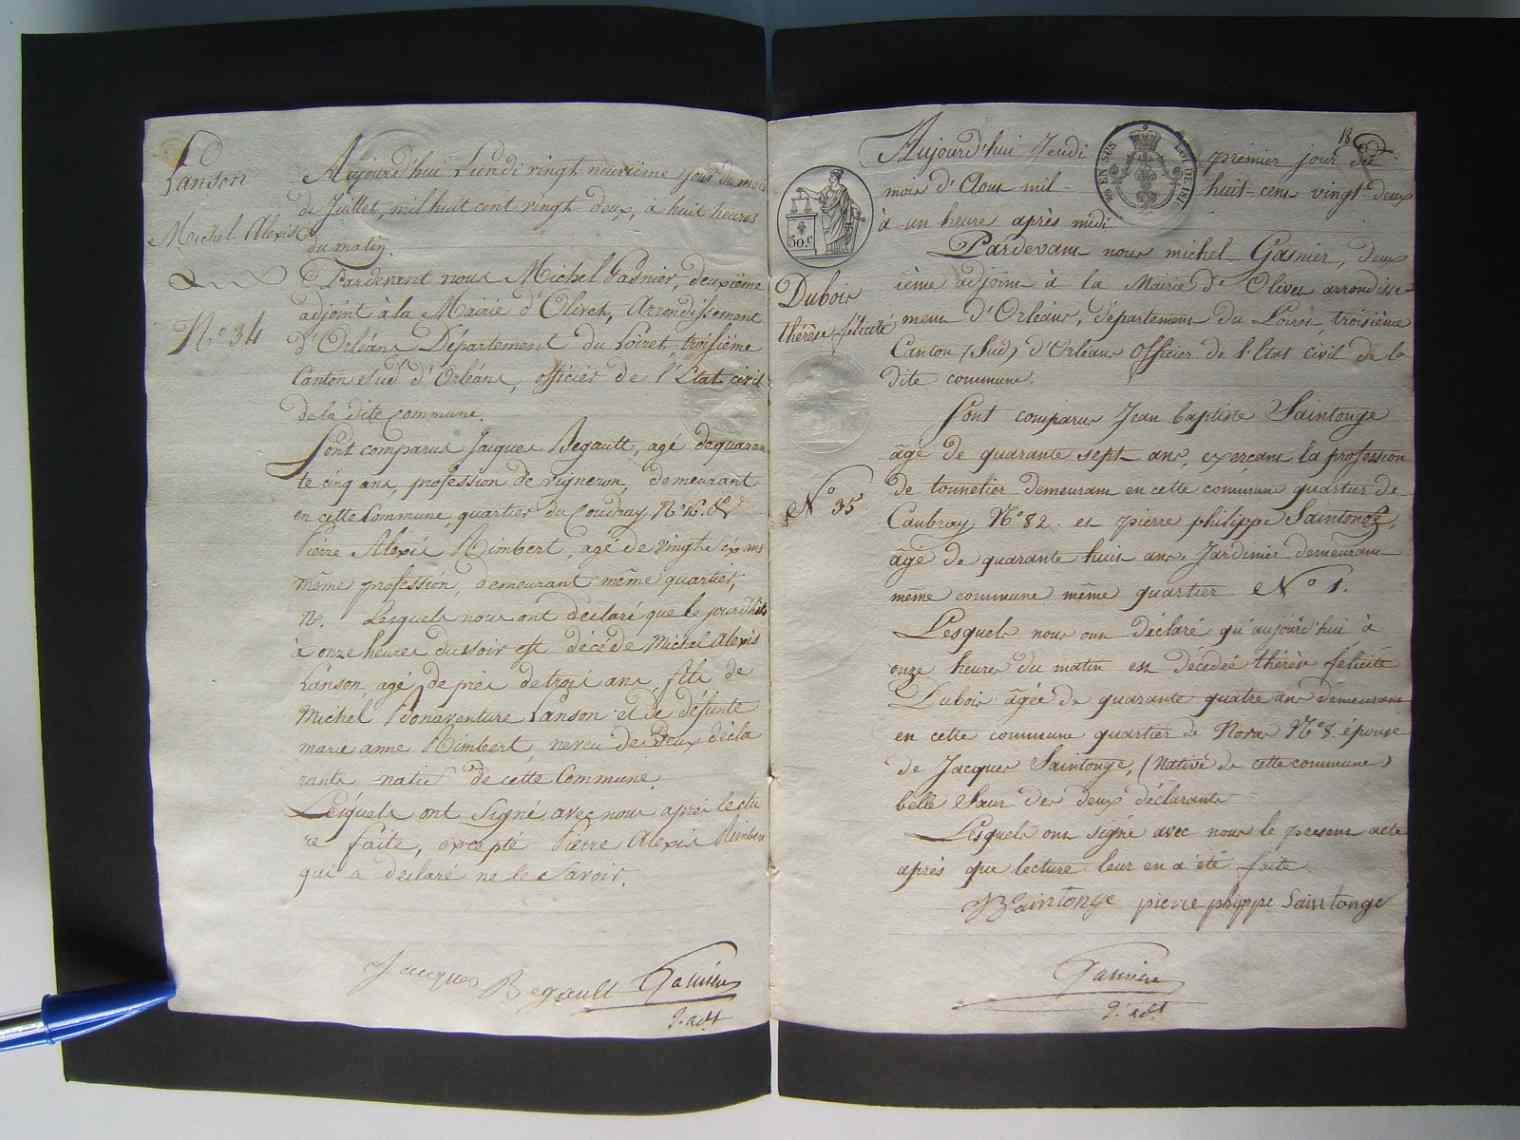 Lanson
Michel Alexis
N.o 34
Aujourd'hui Lundi vingt neuvieme jour du mois
de Juillet, mil huit cent vingt deux, à huit heures
du matin
Pardevant nous Michel Gasnier, deuxième
adjoint à la Mairie d'Olivet, Arrondissement
d'Orléans Département du Loiret, troisième
Canton Sud d'Orléans, officier de l'Etat civil
de la dite Commune.
Sont comparus Jacques Begault, agé de quaran
te cinq ans, profession de vigneron, demeurant
en cette Commune quartier du Coudray N.o 16. &
Pierre Alexis Rimbert, agé de vingt six ans
même profession, demeurant même quartier,
N.o Lesquels nous ont déclaré que le
à onze heures du soir est décédé Michel Alexis
Lanson, agé de près de trois ans, fils de
Michel Bonaventure Lanson et de défunte
marie anne Rimbert, neveu des deux décla
rants natif de cette Commune.
Lesquels ont Signé avec nous après lectu
re faite, excepté Pierre Alexis Rimbert
qui a déclaré ne le Savoir.
Jacques Begault Gasnier
2.e adjt
18
EN SUS
50.c
Dubois
thérèse félicité
N.o 35
Aujourd'hui Jeudi premier jour du
mois d'Aout mil huit-cent vingt-deux
à un heure après midi
Pardevant nous michel Gasnier, deux
ième adjoint à la Mairie d'Olivet arrondisse-
ment d'Orléans, département du Loiret, troisième
Canton (Sud) d'Orléans Officier de l'Etat civil de la
dite commune.
Sont comparus Jean baptiste Saintonge
âgé de quarante sept ans, exercant la profession
de tounelier demeurant en cette commune quartier de
Caubray N.o 82. et pierre philippe Saintonge,
âgé de quarante huit ans Jardinier demeurant
même commune même quartier N.o 1.
Lesquels nous ont déclaré qu'aujourd'hui à
onze heures du matin est décédée thérèse félicité
Dubois âgée de quarante quatre ans demeurant
en cette commune quartier de N.o 8. épouse
de Jacques Saintonge, (Native de cette commune)
belle Sœur des deux déclarants
Lesquels ont signé avec nous le présent acte
après que lecture leur en a été faite
Saintonge pierre phippe Saintonge
Gasnier
2.e adjt